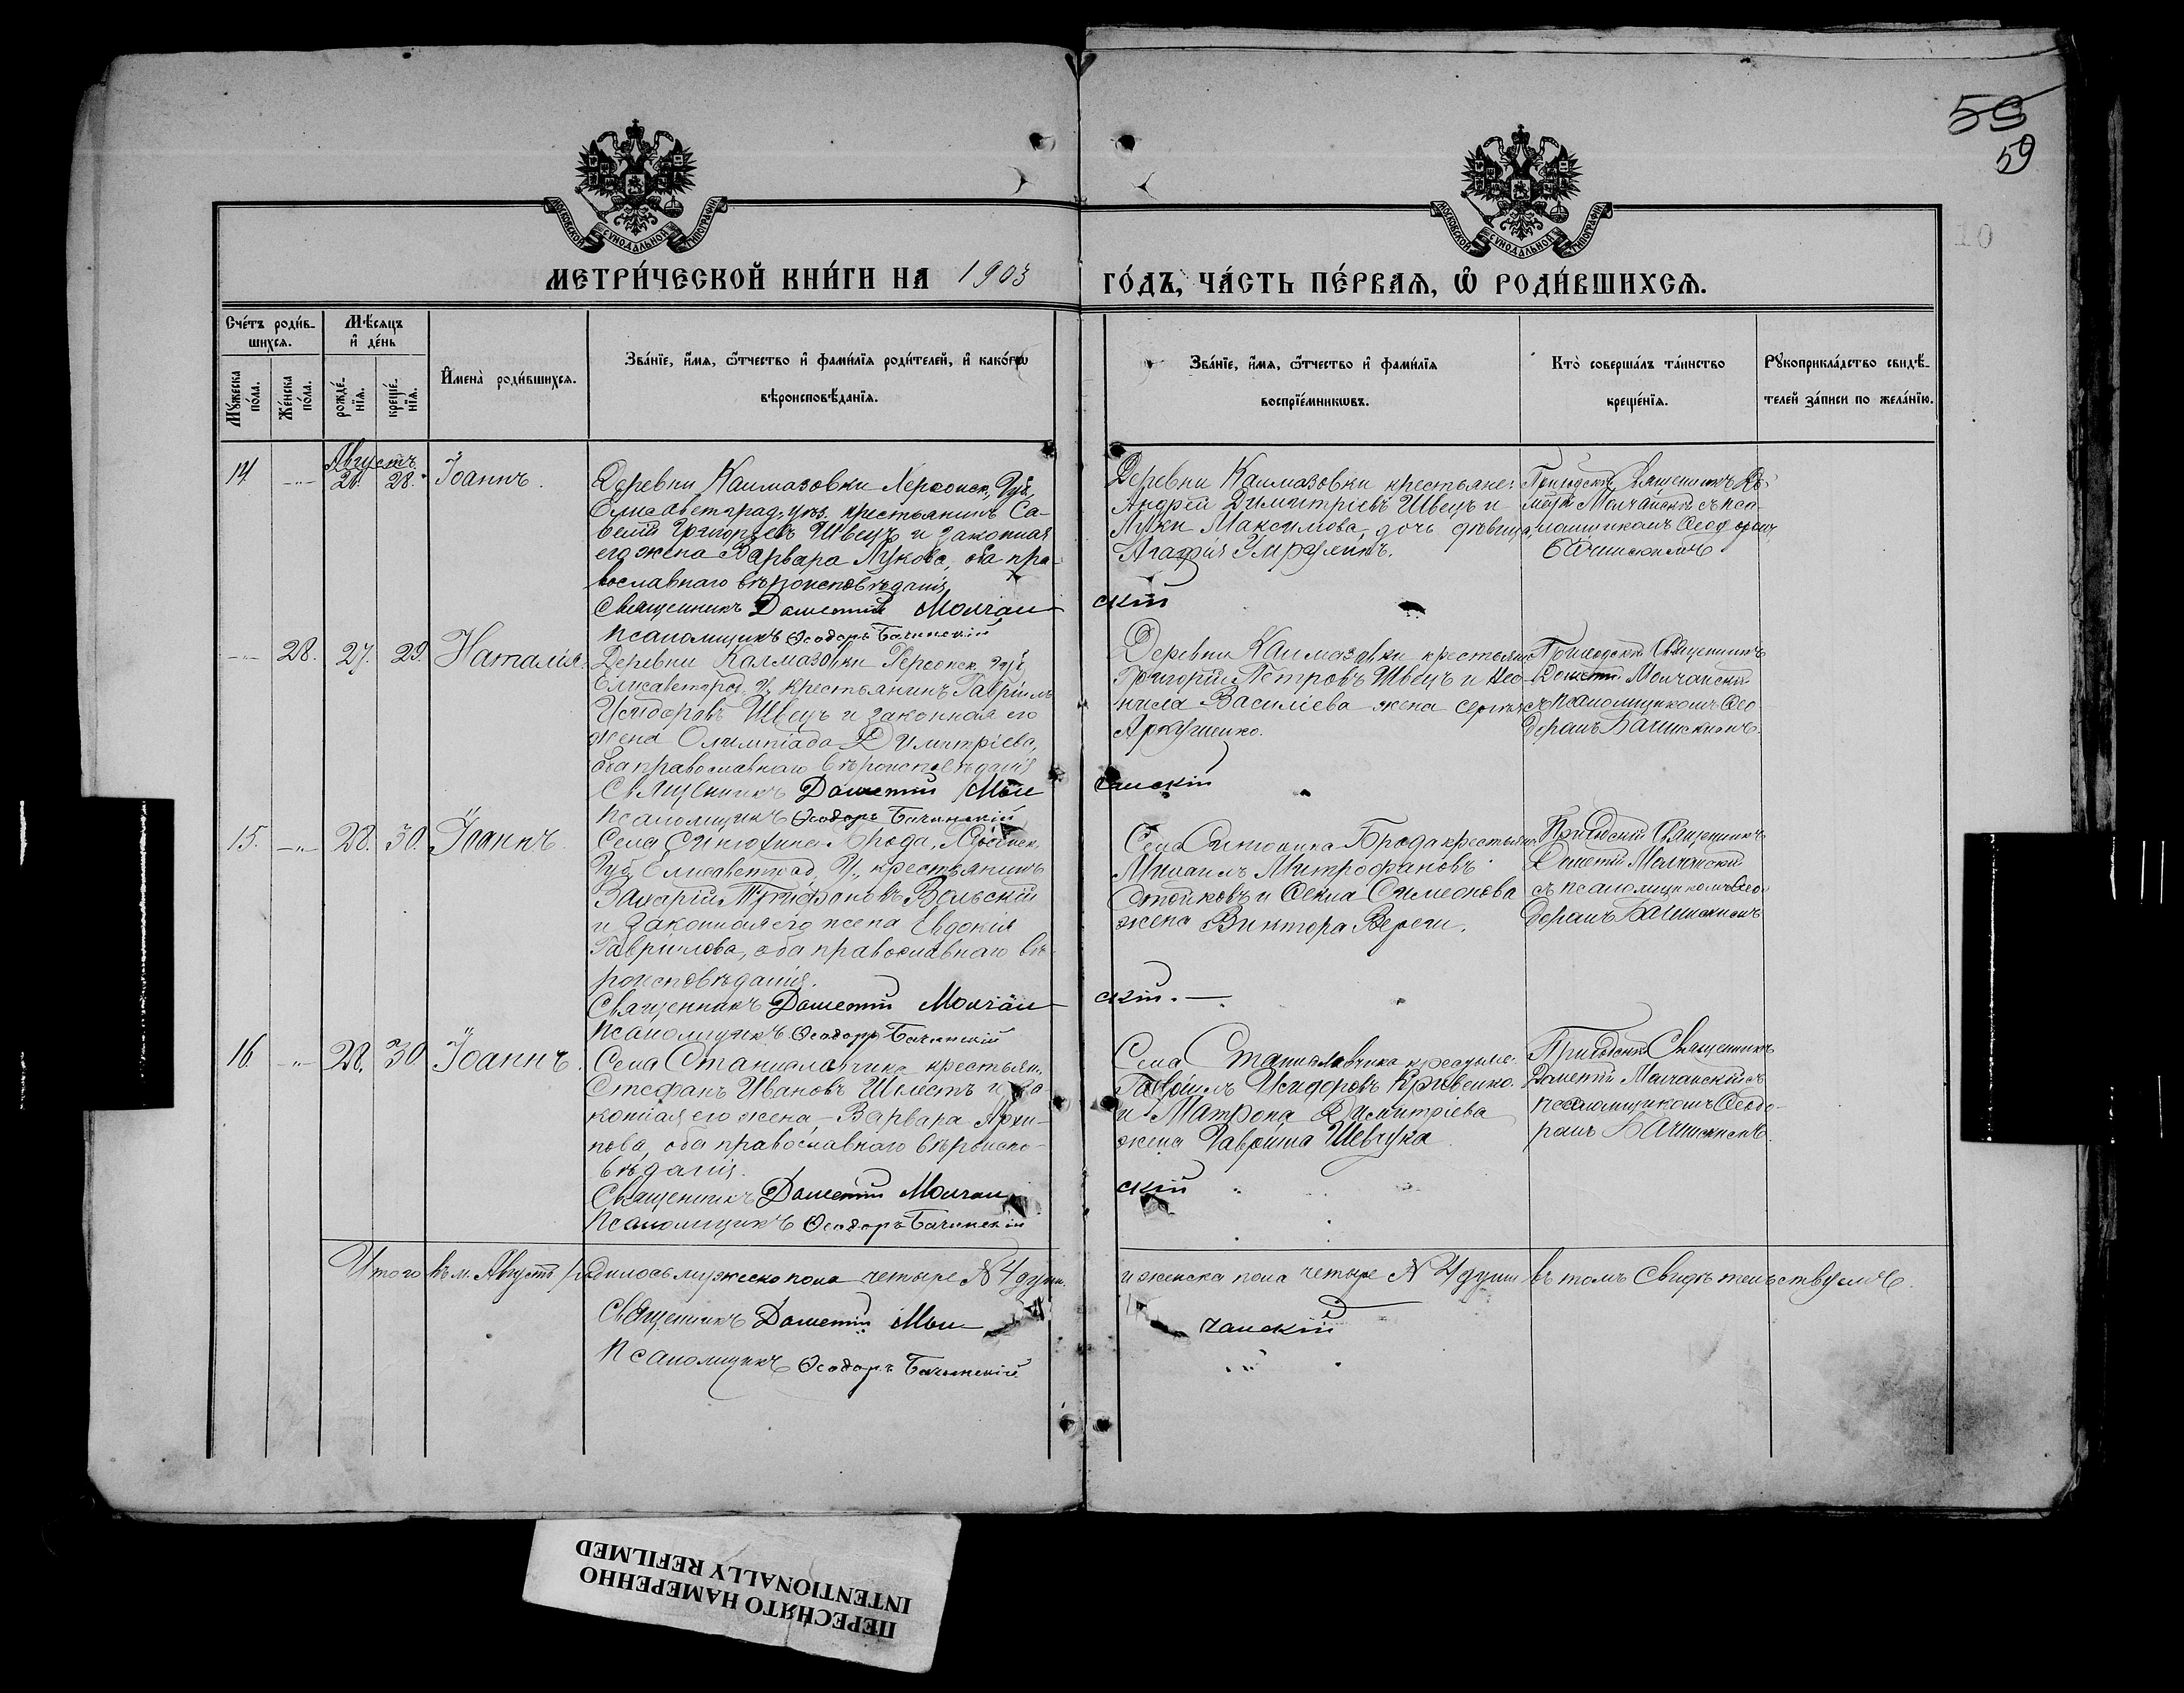 59
59
10
МОСКОВСКОЙ СУНОДАЛЬНОЙ ТИПОГРАФІИ
МОСКОВСКОЙ СУНОДАЛЬНОЙ ТИПОГРАФІИ
МЕТРИ́ЧЕСКОЙ КНИ́ГИ НА 1903
ГО́ДЪ, ЧА́СТЬ ПЕ́РВАЯ, Ѡ҆ РОДИ́ВШИХСЯ.
Сче́тъ роди́в-
шихся.
Му́жеска по́ла.
Же́нска по́ла.
Мѣ́сяцъ
и҆ де́нь
рожде́-
нїя.
креще́-
нїя.
И҆мена̀ роди́вшихся.
Зва́нїе, и҆́мя, ѻ҆́тчество и҆ фами́лїя роди́телей, и҆ како́гѡ
вѣроисповѣ́данїя.
Зва́нїе, и҆́мя, ѻ҆́тчество и҆ фами́лїя
воспрїе́мникѡвъ.
Кто̀ соверша́лъ та́инство
креще́нїя.
Рꙋкоприкла́дство свидѣ́-
телей за́писи по жела́нїю.
Августъ
14 -"- 28. Іоаннъ.
Деревни Каимазовки Херсонск. Губ.
Елисаветград. уѣз. крестьянинъ Са-
ветій Григорьевъ Швецъ и законная
его жена Варвара Лукова, оба пра-
вославнаго вѣроисповѣданія
Священникъ Дометій Молчан
Псаломщикъ Ѳеодоръ Бачинскій
Деревни Каимазовки крестьяне:
Андрей Димитріевъ Швецъ и
Луки Максимова, дочь дѣвица,
Агафія
скій
Приходскій Священникъ До-
метій Молчанскій съ пса-
ломщикомъ Ѳеодоромъ
Бачинскимъ
-"- 28. 27. 29. Наталія.
Деревни Каимазовки Херсонск. Губ.
Елисаветград. У. крестьянинъ Гавріилъ
Исидоровъ Швецъ и законная его
жена Олимпіада Димитріева,
оба православнаго вѣроисповѣданія
Священникъ Дометій Мол
Псаломщикъ Ѳеодоръ Бачинскій
Деревни Каимазовки крестьяне
Григорій Петровъ Швецъ и Нео-
нила Василіева жена Сергія
Аркушенко.
чанскій
Приходскій Священникъ
Дометій Молчанскій
съ псаломщикомъ Ѳео-
доромъ Бачинскимъ.
15. -"- 28. 30. Іоаннъ.
Села Синюхина-Брода, Херсонск.
Губ. Елисаветград. У., крестьянинъ
Захарій Трифоновъ Вольскій
и законная его жена Евдокія
Гавриілова, оба православнаго вѣ-
роисповѣданія.
Священникъ Дометій Молчан
Псаломщикъ Ѳеодоръ Бачинскій
Села Синюхина-Брода крестьяне
Михаилъ Митрофановъ
Стойковъ и Ѳекла Симеонова
жена Виктора
скій. —
Приходскій Священникъ
Дометій Молчанскій
съ псаломщикомъ Ѳео-
доромъ Бачинскимъ
16 -"- 28. 30 Іоаннъ.
Села Станиславчика крестьян.
Стефанъ Ивановъ Шелестъ и за-
конная его жена Варвара Архи-
пова, оба православнаго вѣроиспо-
вѣданія.
Священникъ Дометій Молчан
Псаломщикъ Ѳеодоръ Бачинскій
Села Станиславчика крестьяне:
Гавріилъ Исидоровъ Кривенко.
и Матрона Димитріева
жена Гавріила Шевчука
скій
Приходскій Священникъ
Дометій Молчанскій съ
псаломщикомъ Ѳеодо-
ромъ Бачинскимъ.
Итого въ м. Августѣ родилось мужеско пола четыре № 4 души
и женска пола четыре № 4 души въ томъ свидѣтельствуемъ.
Священникъ Дометій Мол
чанскій
Псаломщикъ Ѳеодоръ Бачинскій
ПЕРЕСНЯТО НАМЕРЕННО
INTENTIONALLY REFILMED